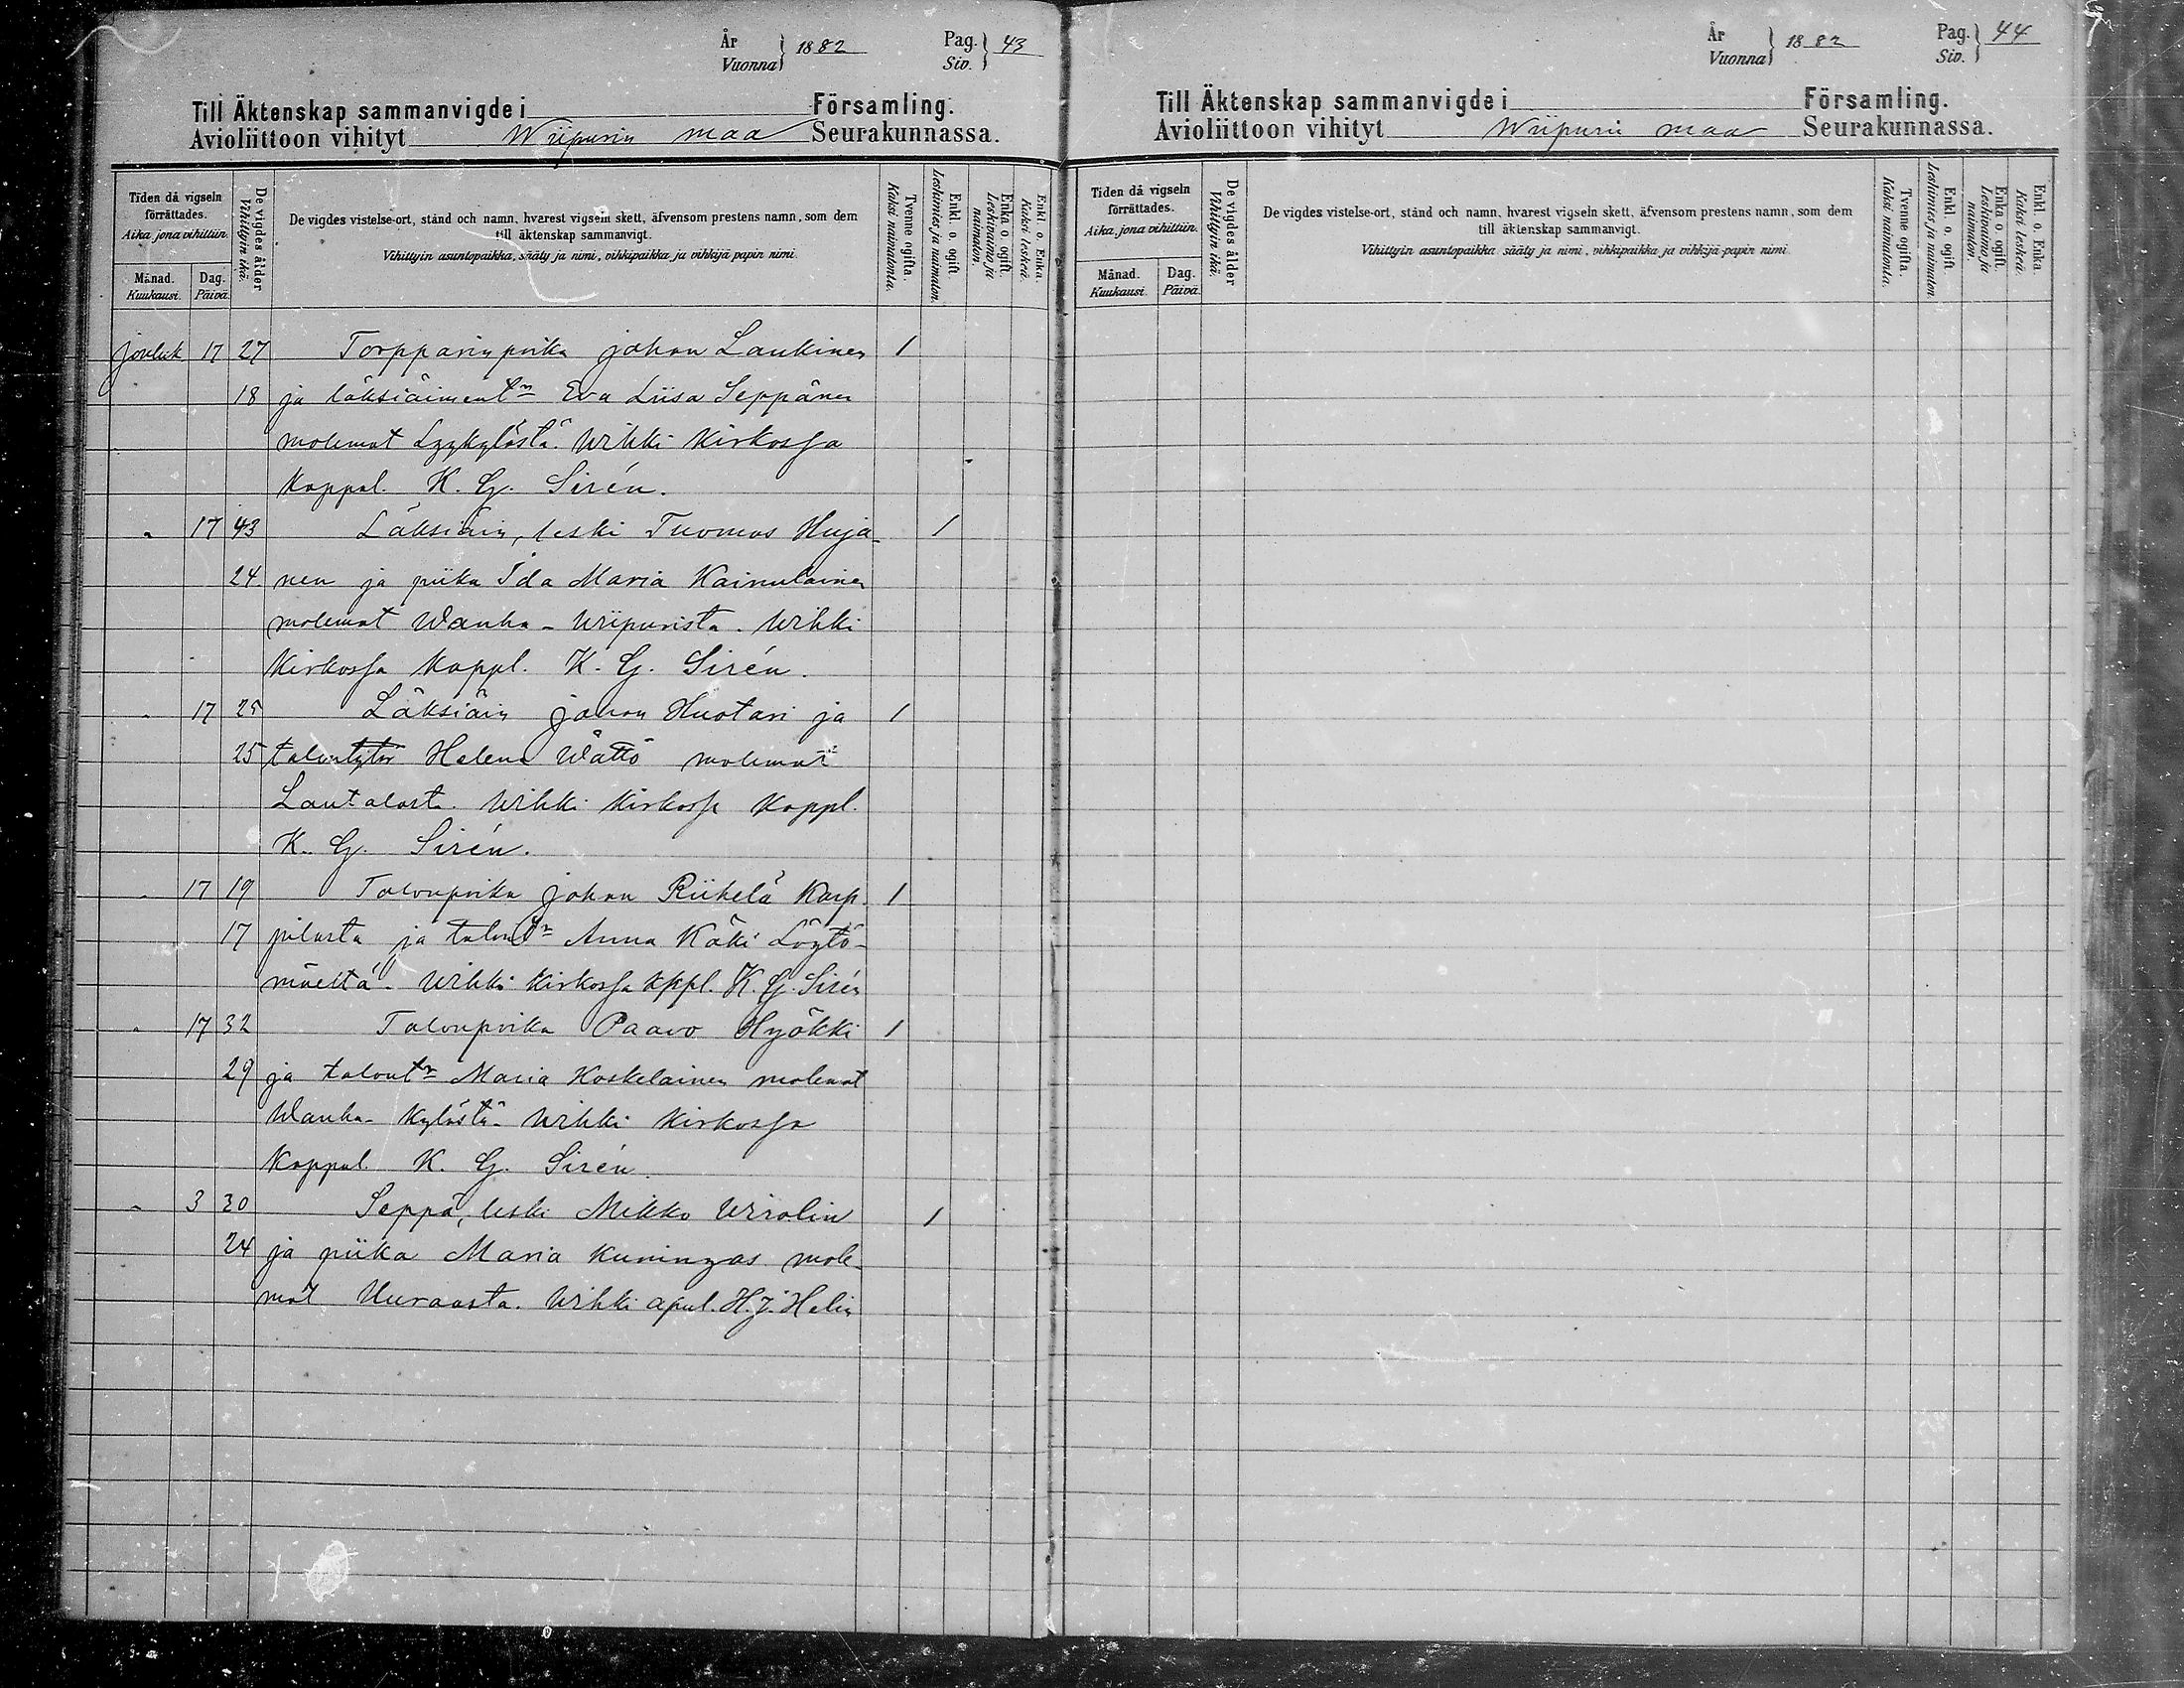 År
Vuonna } 1882
Pag.
Siv. } 43
Till Äktenskap sammanvigde i Församling.
Avioliittoon vihityt Wiipurin maa Seurakunnassa.
Tiden då vigseln förrättades.
Aika, jona vihittiin.
Månad. Dag.
Kuukausi. Päivä.
De vigdes ålder
Vihittyin ikä.
De vigdes vistelse-ort, stånd och namn, hvarest vigseln skett, äfvensom prestens namn, som dem
till äktenskap sammanvigt.
Vihittyin asuntopaikka, sääty ja nimi, vihkipaikka ja vihkijä papin nimi.
Tvenne ogifta.
Kaksi naimatonta.
Enkl. o. ogift.
Leskimies ja naimaton.
Enka o. ogift.
Leskivaimo ja naimaton.
Enkl. o. Enka.
Kaksi leskeä.
Jouluk 17 27 Torpparinpoika Johan Laukinen 1
18 ja läksiäimentr Eva Liisa Seppänen
molemat Lyykylästä. Wihki Kirkossa
Kappal. K. G. Sirén.
" 17 43 Läksiäin, leski Tuomas Huja- 1
24 nen ja piika Ida Maria Kainulainen
molemat Wanha-Wiipurista. Wihki
Kirkossa Kappl. K. G. Sirén.
" 17 25 Läksiäin Johan Huotari ja 1
25 talontytär Helena Wättö molemat
Lautalasta. Wihki Kirkossa Kappl.
K. G. Sirén.
" 17 19 Talonpoika Johan Riihelä Karp- 1
17 pilasta ja talontr Anna Käki Löytö-
mäeltä. Wihki Kirkossa Kppl. K. G. Sirén
" 17 32 Talonpoika Paavo Hyökki 1
29 ja talontr Maria Koskelainen molemat
Wanha-Kylästä. Wihki Kirkossa
Kappal K. G. Sirén
" 3 30 Seppä, leski Mikko Wirolin 1
24 ja piika Maria Kuningas mole-
mat Uuraasta. Wihki apul. H. J. Helin
År
Vuonna } 1882
Pag.
Siv. } 44
Till Äktenskap sammanvigde i Församling.
Avioliittoon vihityt Wiipurin maa Seurakunnassa.
Tiden då vigseln förrättades.
Aika, jona vihittiin.
Månad. Dag.
Kuukausi. Päivä.
De vigdes ålder
Vihittyin ikä.
De vigdes vistelse-ort, stånd och namn, hvarest vigseln skett, äfvensom prestens namn, som dem
till äktenskap sammanvigt.
Vihittyin asuntopaikka, sääty ja nimi, vihkipaikka ja vihkijä-papin nimi.
Tvenne ogifta.
Kaksi naimatonta.
Enkl. o. ogift.
Leskimies ja naimaton.
Enka o. ogift.
Leskivaimo ja naimaton.
Enkl. o. Enka.
Kaksi leskeä.